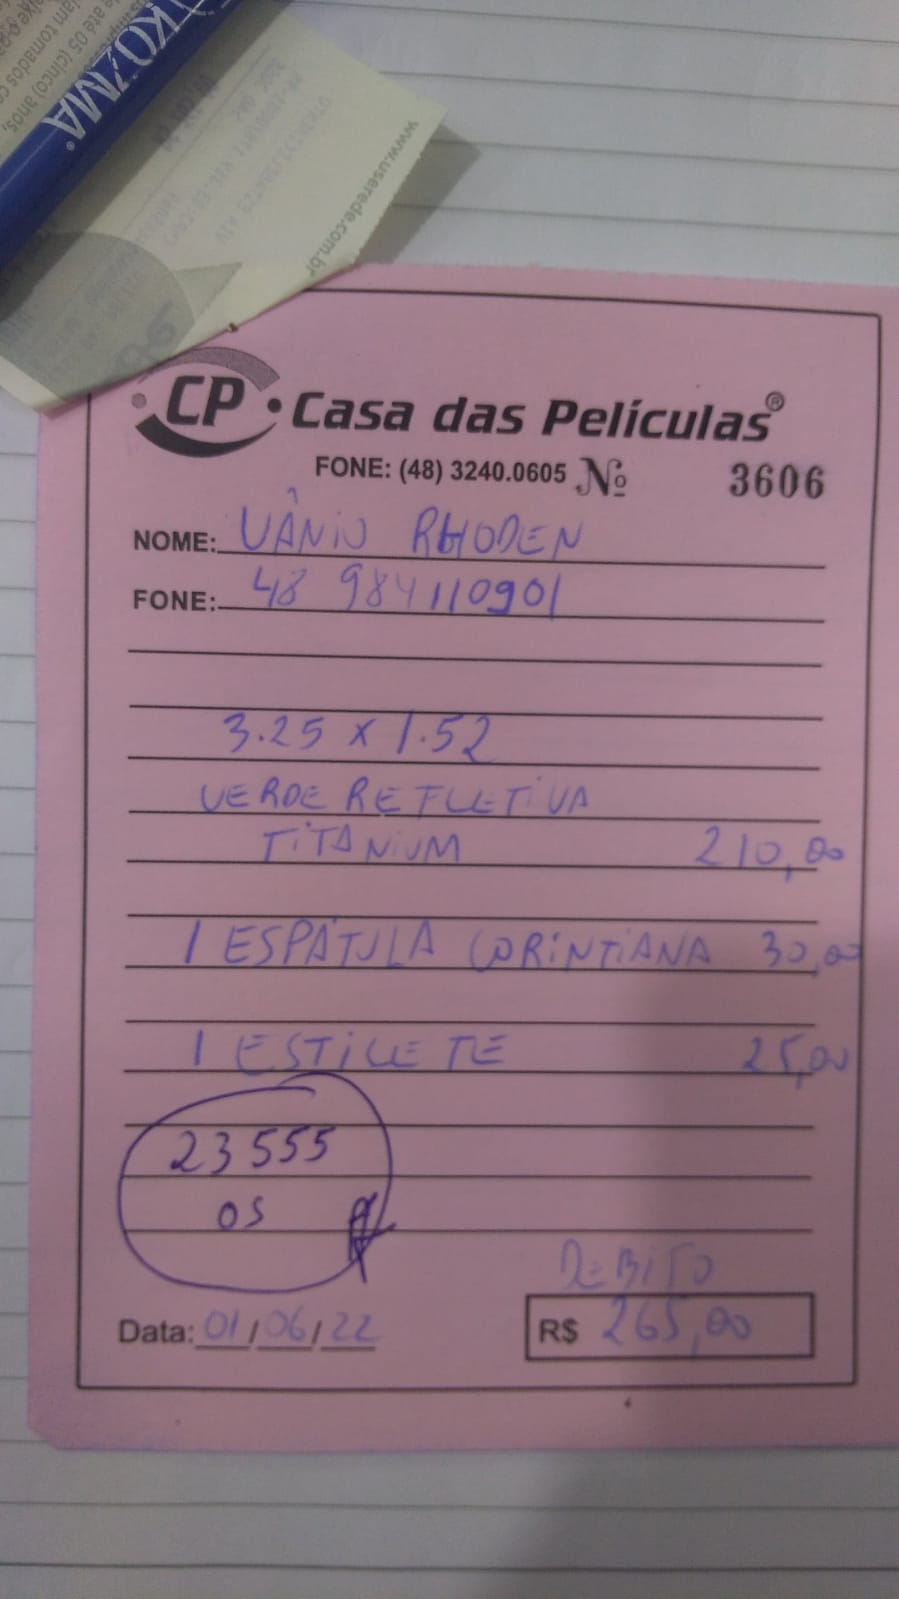 KOZMA®
www.userede.com.br
CP • Casa das Películas®
FONE: (48) 3240.0605 Nº 3606
NOME: VÂNIO RHODEN
FONE: 48 984110901
3.25 x 1.52
VERDE REFLETIVA
TITANIUM 210,00
1 ESPÁTULA CORINTIANA 30,00
1 ESTILETE 25,00
23555
OS
DEBITO
Data: 01/06/22 R$ 265,00